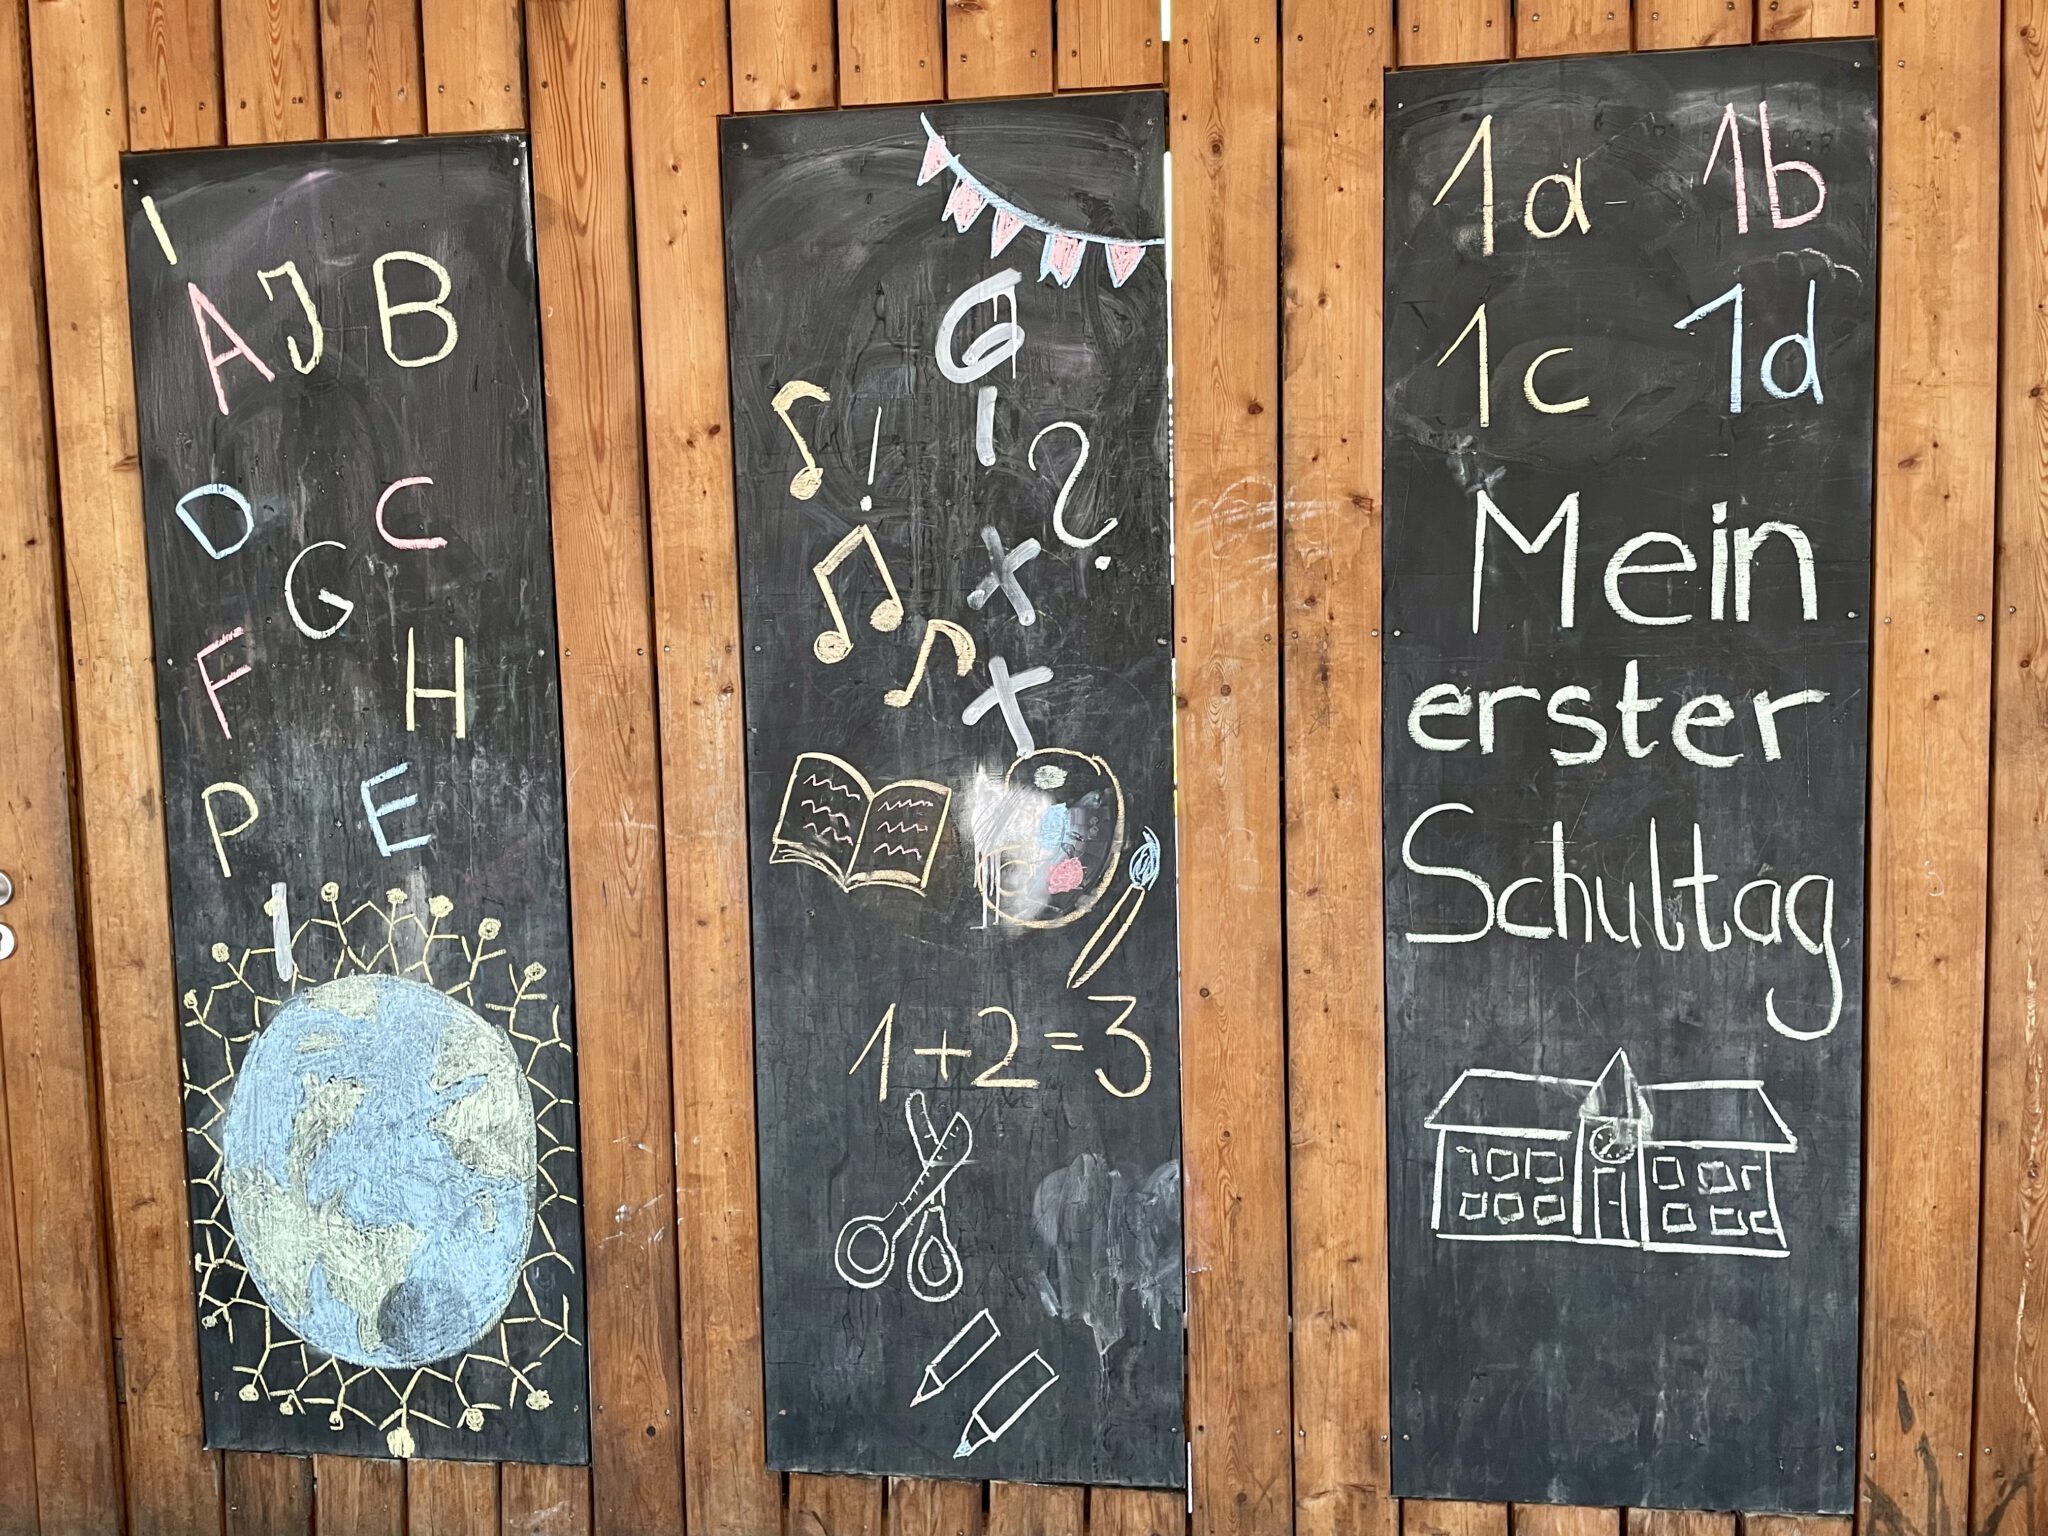 I
A J B
D C
G
F H
P E
G
!
?
1 + 2 = 3
1a 1b
1c 1d
Mein
erster
Schultag